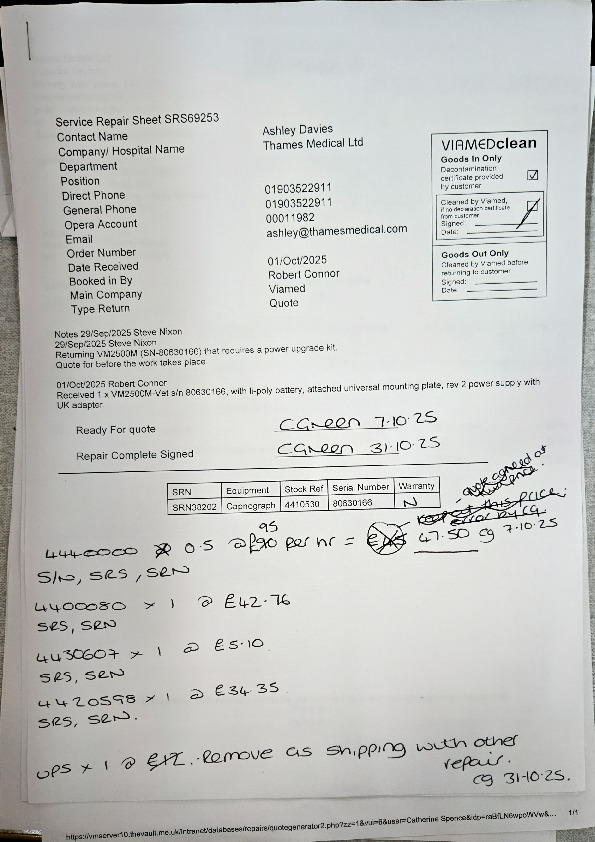 Service Repair Sheet SRS69253
Contact Name Ashley Davies
Company/ Hospital Name Thames Medical Ltd
Department
Position
Direct Phone 01903522911
General Phone 01903522911
Opera Account 00011982
Email ashley@thamesmedical.com
Order Number
Date Received 01/Oct/2025
Booked in By Robert Connor
Main Company Viamed
Type Return Quote
VIAMEDclean
Goods In Only
Decontamination
certificate provided
by customer
Cleaned by Viamed,
if no declaration certificate
from customer
Signed:
Date:
Goods Out Only
Cleaned by Viamed before
returning to customer
Signed:
Date:
Notes 29/Sep/2025 Steve Nixon
29/Sep/2025 Steve Nixon
Returning VM2500M (SN-80630166) that requires a power upgrade kit.
Quote for before the work takes place
01/Oct/2025 Robert Connor
Received 1 x VM2500M-Vet s/n 80630166, with li-poly battery, attached universal mounting plate, rev 2 power supply with
UK adapter
Ready For quote CGreen 7.10.25
Repair Complete Signed CGreen 31.10.25
SRN Equipment Stock Ref Serial Number Warranty
SRN38202 Capnograph 4410530 80630166 N
agreed at
this price.
error by cg
95
4440000 x 0.5 @ £90 per hr = 47.50 cg 7.10.25
S/N, SRS, SRN
4400080 x 1 @ £42.76
SRS, SRN
4430607 x 1 @ £5.10
SRS, SRN
4420598 x 1 @ £34.35
SRS, SRN.
UPS x 1 @ Remove as shipping with other
repair.
cg 31.10.25.
1/1